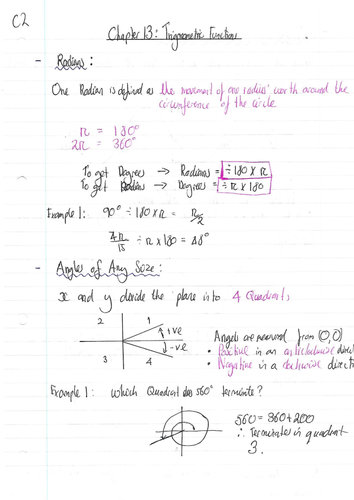 C2
Chapter 13: Trigonometric Functions
- Radians:
One Radian is defined as the movement of one radius' worth around the
circumference of the circle
π = 180°
2π = 360°
To get Degrees → Radians = ÷180 × π
To get Radian → Degrees = ÷ π × 180
Example 1: 90° ÷ 180 × π = π/2
4π/15 ÷ π × 180 = 48°
- Angles of Any Size:
x and y divide the plane into 4 Quadrants
2 1
+ve
-ve
3 4
Angles are measured from (0,0)
• Positive in an anticlockwise direc
• Negative in a clockwise direct
Example 1: which Quadrant does 560° terminate?
560 = 360 + 200
∴ Terminates in quadrant
3.